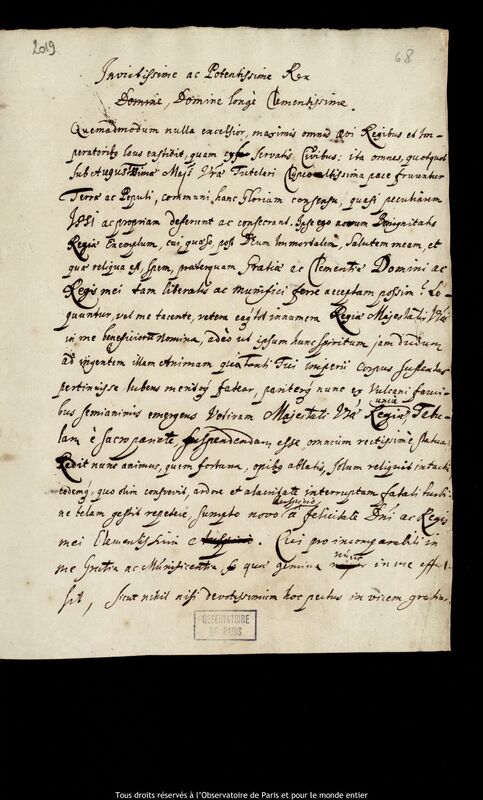 2019
68
Invictissime ac Potentissime Rex
Domine, Domine longè Clementissime.
Quemadmodum nulla excelsior, maximis omnis ævi Regibus et Im-
peratoribq laus exstitit, quam servatis Civibus: ita omnes, quotquot
sub Augustissimæ Majtis Vræ Tutelari altissima pace fruuntur
Terræ ac Populi, communi hanc Gloriam consensu, quasi peculiarem
IPSI ac propriam deferunt ac consecrant. Ipse ego novum Benignitatis
Regiæ Exemplum, cui, quæso, post Deum immortalem, salutem meam, et
quæ reliqua est, spem, præterquam Gratiæ ac Clementiæ Domini ac
Regis mei tam liberalis ac munifici ferre acceptam possim? Lo-
quuntur, vel me tacente, innumera Regiæ Majestatis Væ
in me beneficiorum Nomina, adeò ut ipsum hunc spiritum jam dudum
ad ingentem illam Animam quæ tanti Tui imperii Corpus sustentat
pertinuisse lubens meritoq fatear, pariterq nunc ex Vulcani fauci-
bus semianimis emergens Votivam Majestati Væ Regiæ Tabu-
lam è sacro pariete suspendendam esse omnium rectissimè statuam
Redit nunc animus, quem fortuna, opibq ablatis, solum reliquit intactum
eodemq, quo olim consuevi, ardore et alacritate interruptam fatali turbi-
ne telam gestit repetere, sumpto novo auspicio à felicitate Dni ac Regis
mei Clementissimi. Cui pro incomparabili in
me Gratia ac Munificentia quæ gemina in me efful-
sit, sicut nihil nisi devotissimum hoc pectus in vicem gratiæ
OBSERVATOIRE
DE PARIS
Tous droits réservés à l'Observatoire de Paris et pour le monde entier